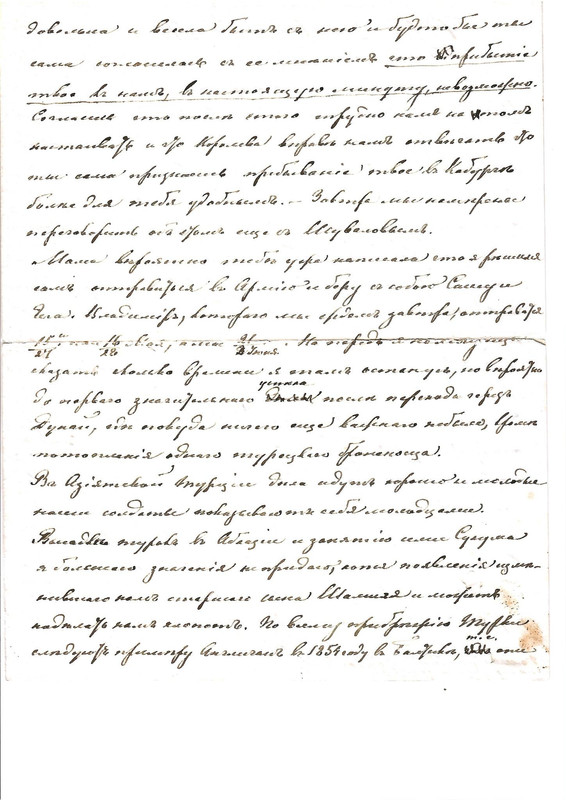 довольна и весела быть съ нею и будто бы ты
сама согласилась съ ея мнѣніемъ что прибытіе
твое къ намъ, въ настоящую минуту, невозможно.
Согласись что послѣ этого трудно намъ на этомъ
настаивать и что Королева вправѣ намъ отвѣчать что
ты сама признаешь пребываніе твое въ Кобургѣ
болѣе для тебя удобнымъ. — Завтра мы намѣрены
переговорить объ этомъ еще съ Шуваловымъ.
Мама вѣроятно тебѣ уже написала что я рѣшился
самъ отправиться въ Армію и беру съ собою Сашу и
Владиміръ, котораго мы ждемъ завтра, отправится
15/27 или 16/28 Мая, а мы 21/2 Іюня.
сказать сколько времени я тамъ останусь, но вѣроятно
до перваго значительнаго успѣха послѣ перехода черезъ
Дунай, гдѣ покуда ничего еще важнаго небыло, кромѣ
потопленія одного турецкаго броненосца.
Въ Азіятской Турціи дѣла идутъ хорошо и молодые
наши солдаты показываютъ себя молодцами.
Высадкѣ турокъ въ Абхазіи и занятію ими Сухума
я большаго значенія не придаю, хотя появленіе измѣ-
нившаго намъ старшаго сына Шамиля и можетъ
надѣлать намъ хлопотъ. По всему прибрежію Турки
слѣдуютъ примѣру Англичанъ въ 1854 году въ Балтикѣ, т.е. они